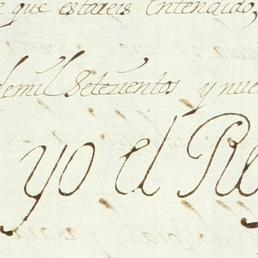 que estareis entendido,
de mil Setecientos y nue
yo el Rey